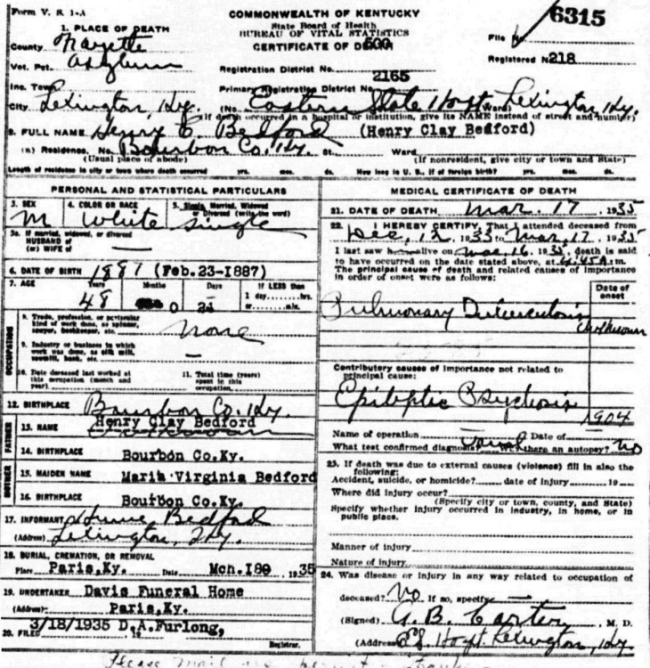 Form V. S. 1-A
COMMONWEALTH OF KENTUCKY
State Board of Health
BUREAU OF VITAL STATISTICS
CERTIFICATE OF DEATH
500
6315
File No.
Registered No. 218
1. PLACE OF DEATH
County Fayette
Vot. Pct. Asylum
Registration District No.
Inc. Town
Primary Registration District No. 2165
City Lexington, Ky. (No. Eastern State Hospt Lexington, Ky. Ward)
(If death occurred in a hospital or institution, give its NAME instead of street and number)
2. FULL NAME Henry C. Bedford (Henry Clay Bedford)
(a) Residence. No. Bourbon Co. Ky. St. Ward
(Usual place of abode) (If nonresident, give city or town and State)
Length of residence in city or town where death occurred yrs. mos. ds. How long in U. S., if of foreign birth? yrs. mos. ds.
PERSONAL AND STATISTICAL PARTICULARS
3. SEX 4. COLOR OR RACE 5. Single, Married, Widowed or Divorced (write the word)
M White Single
5a. If married, widowed, or divorced
HUSBAND of
(or) WIFE of —
6. DATE OF BIRTH 1887 (Feb. 23-1887)
7. AGE Years Months Days If LESS than
48 0 1 day,.....hrs.
or.....min.
OCCUPATION
8. Trade, profession, or particular kind of work done, as spinner, sawyer, bookkeeper, etc. None
9. Industry or business in which work was done, as silk mill, sawmill, bank, etc. —
10. Date deceased last worked at this occupation (month and year)
11. Total time (years) spent in this occupation
12. BIRTHPLACE Bourbon Co. Ky.
FATHER
13. NAME Henry Clay Bedford
14. BIRTHPLACE Bourbon Co.Ky.
MOTHER
15. MAIDEN NAME Maria Virginia Bedford
16. BIRTHPLACE Bourbon Co.Ky.
17. INFORMANT Bedford
(Address) Lexington, Ky.
18. BURIAL, CREMATION, OR REMOVAL
Place Paris,Ky. Date Mch. 1935
19. UNDERTAKER Davis Funeral Home
(Address) Paris,Ky.
20. FILED 3/18/1935 D.A.Furlong,
Registrar.
MEDICAL CERTIFICATE OF DEATH
21. DATE OF DEATH Mar. 17, 1935
22. I HEREBY CERTIFY, That I attended deceased from
Dec. 12, 1933 to Mar. 17, 1935
I last saw h alive on Mar. 16, 1935, death is said
to have occurred on the date stated above, at 6:45 A.m.
The principal cause of death and related causes of importance in order of onset were as follows:
Date of onset
Pulmonary Tuberculosis
Unknown
Contributory causes of importance not related to principal cause:
Epileptic Psychosis
1904
Name of operation Date of
What test confirmed diagnosis? Usual Was there an autopsy? No
23. If death was due to external causes (violence) fill in also the following:
Accident, suicide, or homicide? date of injury 19
Where did injury occur?
(Specify city or town, county, and State)
Specify whether injury occurred in industry, in home, or in public place.
Manner of injury
Nature of injury
24. Was disease or injury in any way related to occupation of
deceased? No If so, specify —
(Signed) G. B. Carter, M. D.
(Address) E.S. Hospt. Lexington, Ky.
Please mail me permit